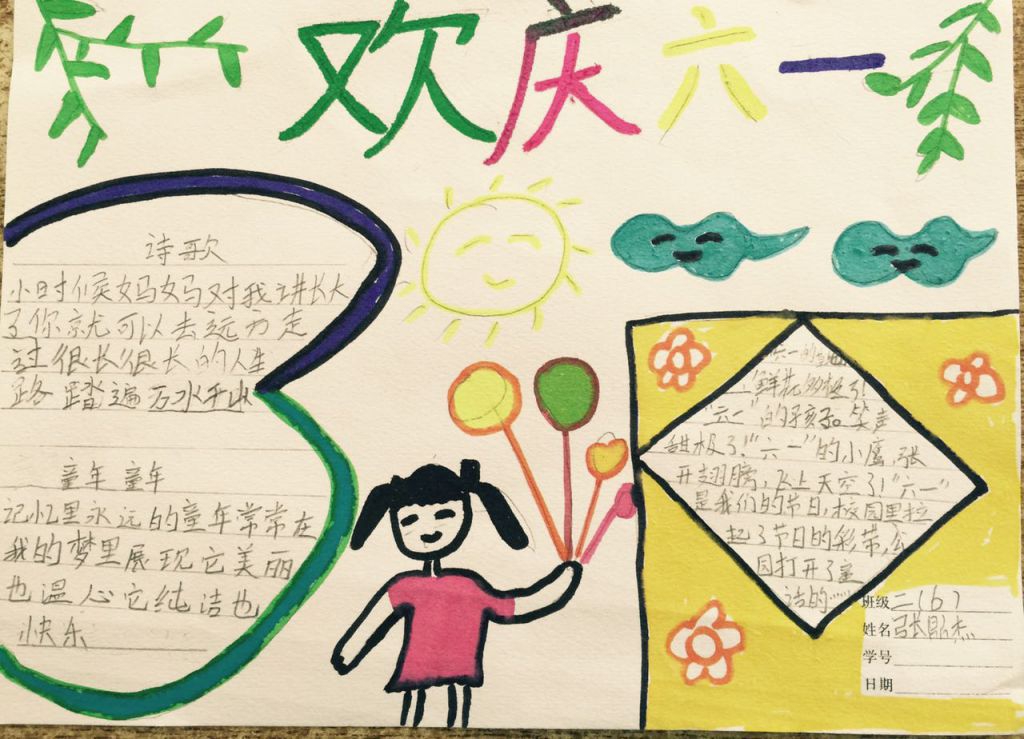 欢庆六一
诗歌
小时候妈妈对我讲长大
了你就可以去远方走
过很长很长的人生
路踏遍万水千山
童年 童年
记忆里永远的童年常常在
我的梦里展现它美丽
也温心它纯洁也
快乐
六一的
鲜花的极了!
"六一"的孩子。笑声
甜极了!"六一"的小鹰,张
开翅膀,飞上天空了!"六一"
是我们的节日,校园里拉
起了节日的彩带,公
园打开了童
洁的……
班级 二(6)
姓名 张
学号
日期